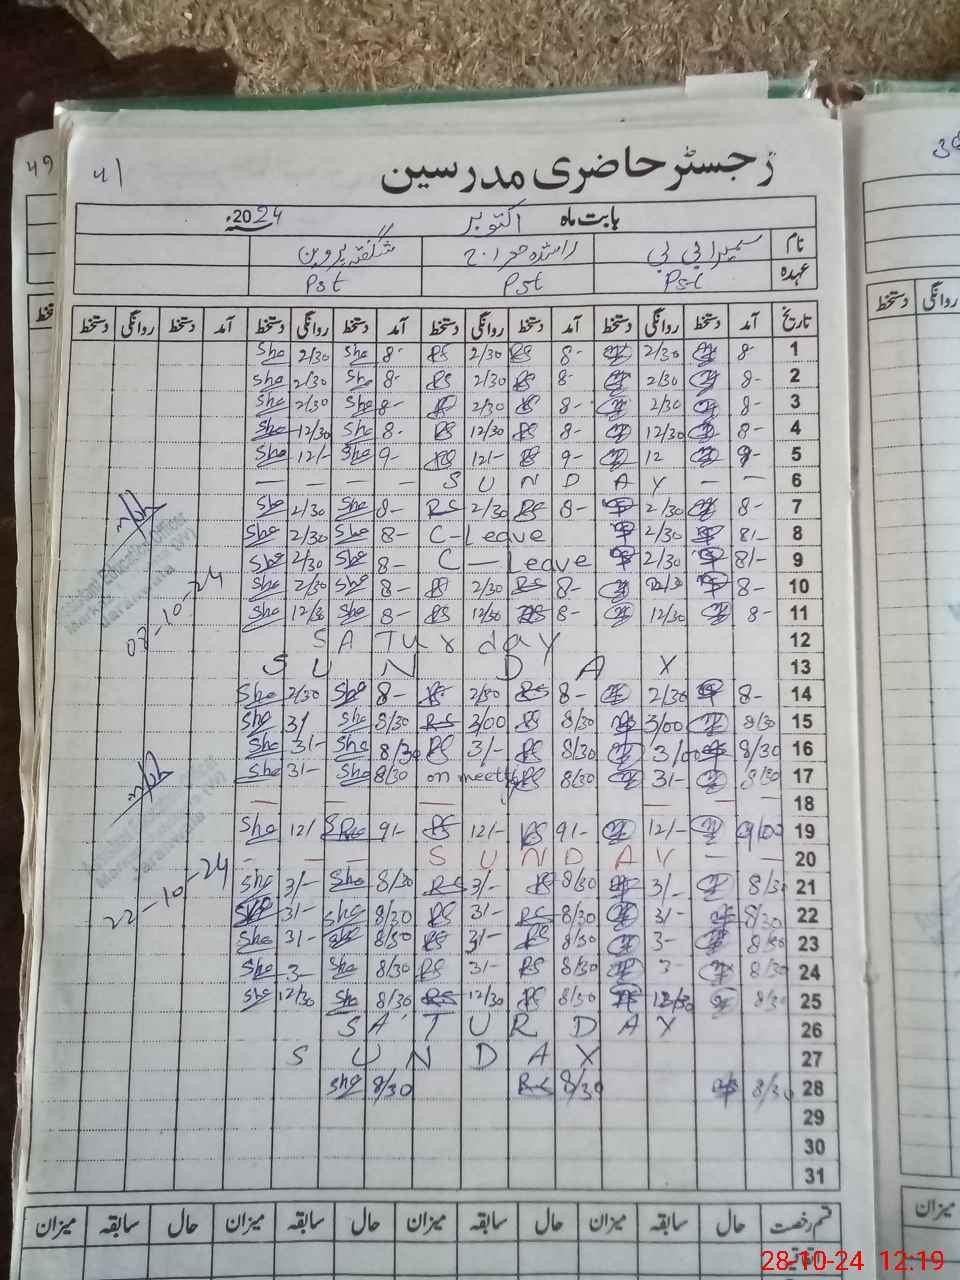 41
رجسٹر حاضری مدرسین
بابت ماہ اکتوبر 2024ء
نام سمیرا بی بی شگفتہ پروین
عہدہ Pst Pst Pst
تاریخ آمد دستخط روانگی دستخط آمد دستخط روانگی دستخط آمد دستخط روانگی دستخط آمد دستخط روانگی دستخط
1 8- 2/30 8- RS 2/30 RS 8- Sha 2/30 Sha
2 8- 2/30 8- RS 2/30 RS 8- Sha 2/30 Sha
3 8- 2/30 8- RS 2/30 RS 8- Sha 2/30 Sha
4 8- 12/30 8- RS 12/30 RS 8- Sha 12/30 Sha
5 9- 12 9- RS 12/- RS 9- Sha 12/- Sha
6 — — — — S U N D A Y — —
7 8- 2/30 8- RS 2/30 RS 8- Sha 2/30 Sha
8 8/- 2/30 C-Leave 8- Sha 2/30 Sha
9 8/- 2/30 C — Leave 8- Sha 2/30 Sha
10 8- 8- RS 2/30 RS 8- Sha 2/30 Sha
11 8- 12/30 8- RS 12/30 RS 8- Sha 12/30 Sha
12 SATurday
13 S U N D A Y
14 8- 2/30 8- RS 2/30 RS 8- Sha 2/30 Sha
15 8/30 3/00 8/30 RS 3/00 RS 8/30 Sha 3/ Sha
16 8/30 3/00 8/30 RS 3/- RS 8/30 Sha 3/- Sha
17 8/30 3/- 8/30 RS on meetg 8/30 Sha 3/- Sha
18 — — — — — —
19 9/00 12/- 9/- RS 12/- RS 9/- 12/ Sha
20 - — — S U N D A Y — —
21 8/30 3/- 8/30 RS 3/- RS 8/30 Sha 3/- Sha
22 8/30 3/- 8/30 RS 3/- RS 8/30 Sha 3/- Sha
23 8/30 3- 8/30 RS 3/- RS 8/30 Sha 3/- Sha
24 8/30 3- 8/30 RS 3/- RS 8/30 Sha 3- Sha
25 8/30 12/30 8/30 RS 12/30 RS 8/30 Sha 12/30 Sha
26 SATURDAY
27 S U N D A Y
28 8/30 8/30 RS 8/30 Sha
29
30
31
07-10-24
22-10-24
قسم رخصت حال سابقہ میزان حال سابقہ میزان حال سابقہ میزان حال سابقہ میزان
49
روانگی دستخط
میزان
28-10-24 12:19